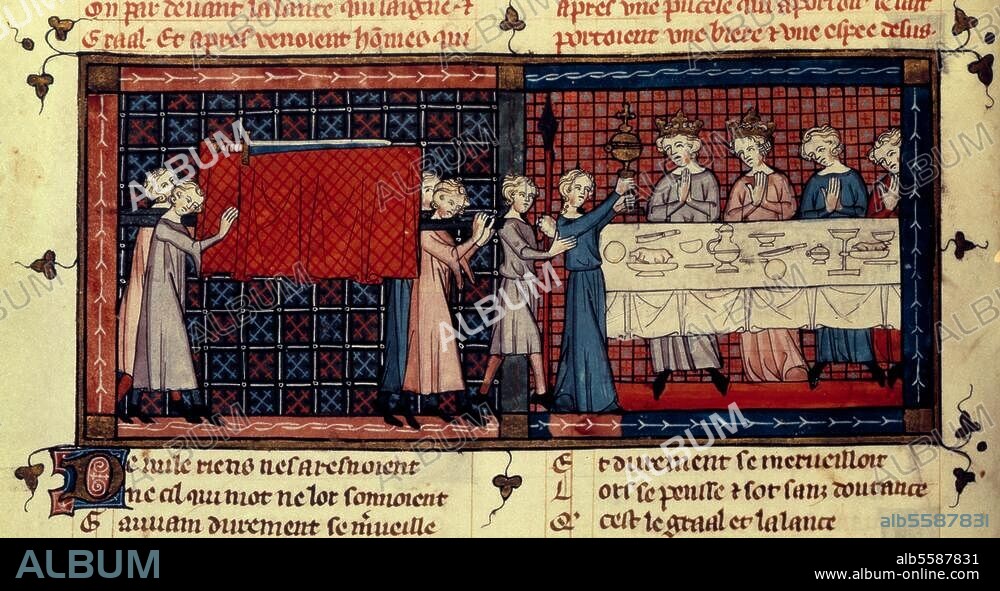 On par devant la lance qui saigne ⁊
Graal. Et apres venoient hōmes qui
apres vne pucele qui aportoit le
portoient vne biere ⁊ vne espee desus.
De nule riens nes aresnoient
Ne cil qui mot ne lor sonnoient
Gauuain durement se m̄ueille
Et durement se merueilloit
Lors se pensse ⁊ sot sanz doutance
Q' cest le graal et la lance
ALBUM
ALBUM
ALBUM
ALBUM
ALBUM
ALBUM
ALBUM
alb5587831
ALBUM
alb5587831
www.album-online.com